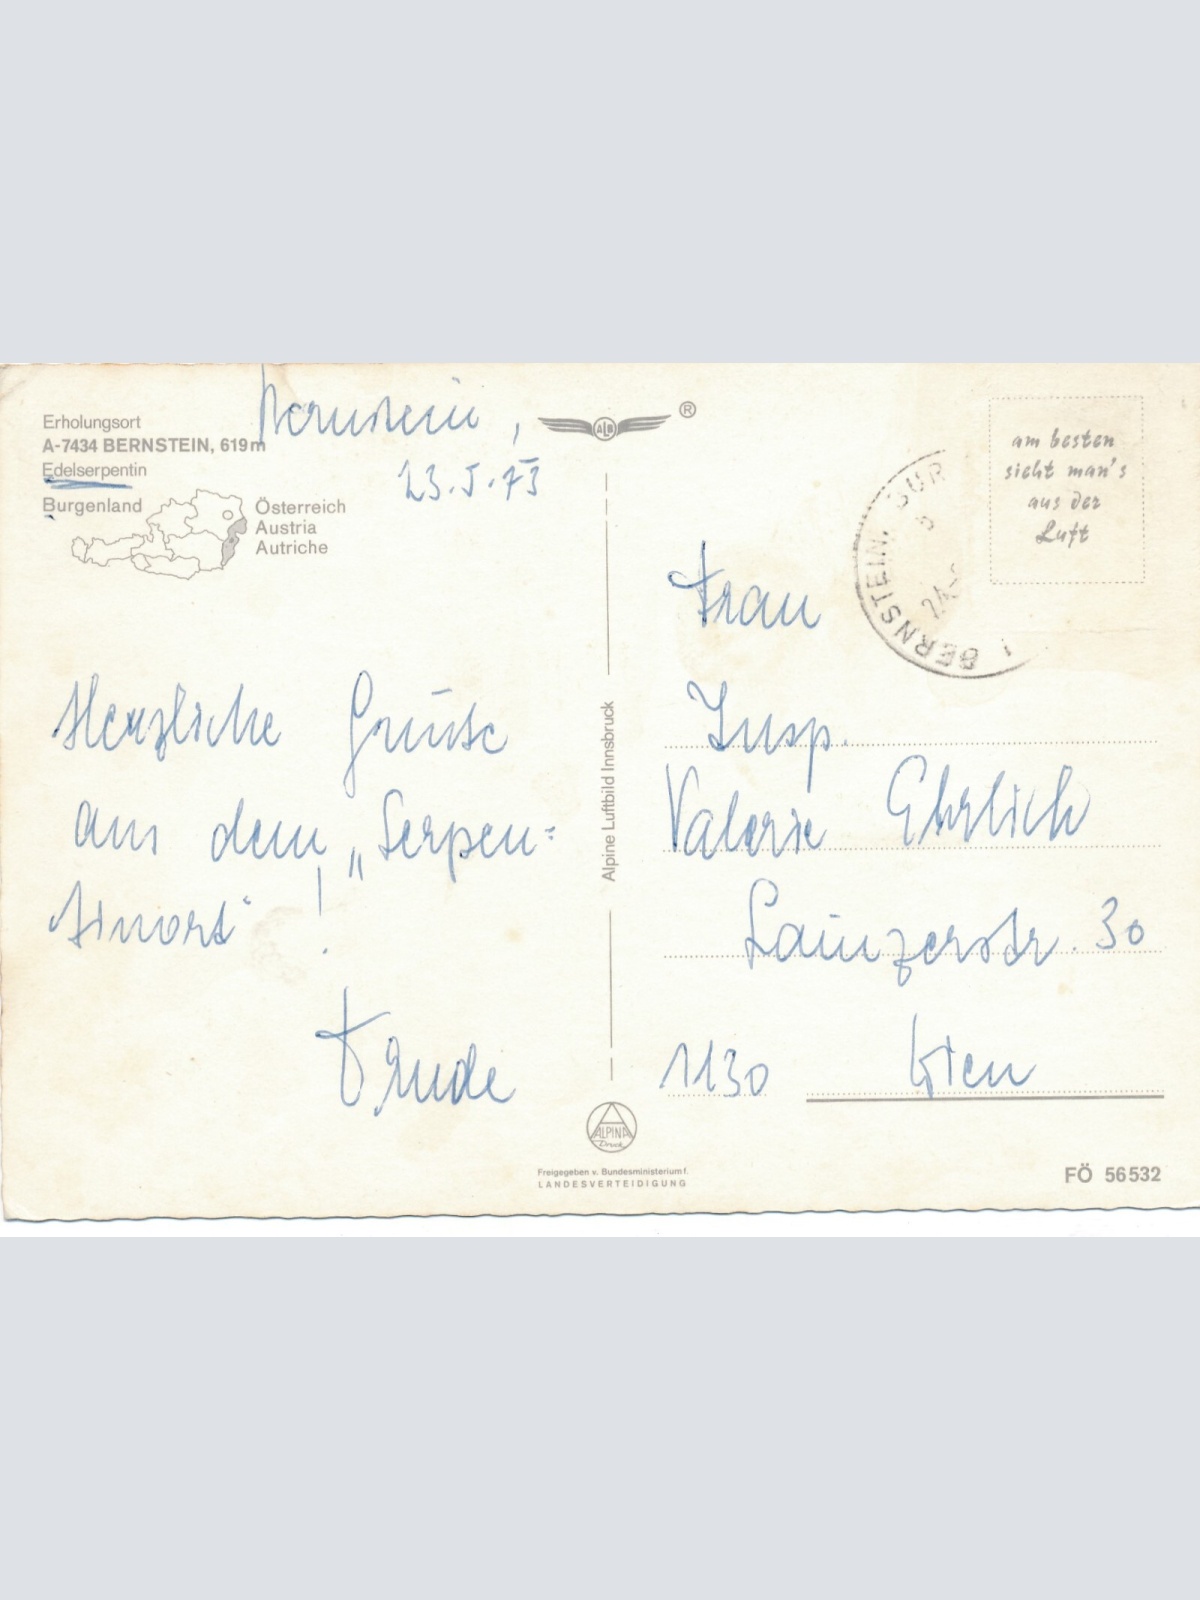 Erholungsort
A-7434 BERNSTEIN, 619m
Edelserpentin
Burgenland
Österreich
Austria
Autriche
Bernstein,
23.5.73
Herzliche Grüße
aus dem „Serpen=
tinort“!
Trude
ALB ®
Alpine Luftbild Innsbruck
ALPINA
Druck
Freigegeben v. Bundesministerium f.
LANDESVERTEIDIGUNG
am besten
sieht man's
aus der
Luft
BERNSTEIN, BUR
Frau
Insp.
Valerie Ehrlich
Lainzerstr. 30
1130 Wien
FÖ 56532